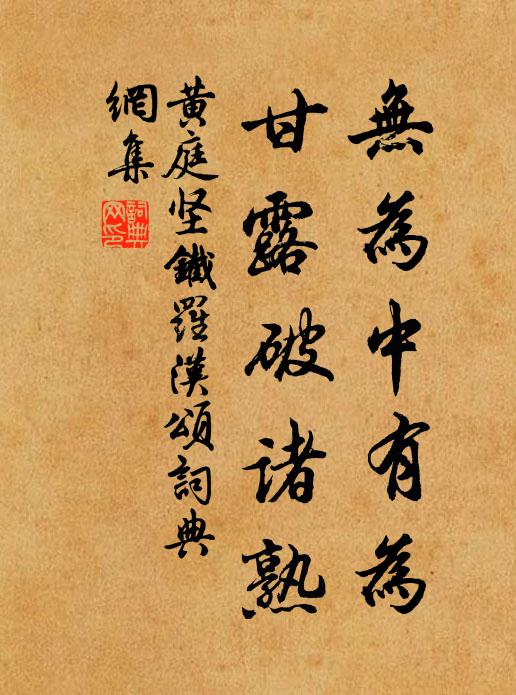 無為中有為
甘露破諸熟
黄庭坚鐵羅漢頌詞典
網集
詞典网印